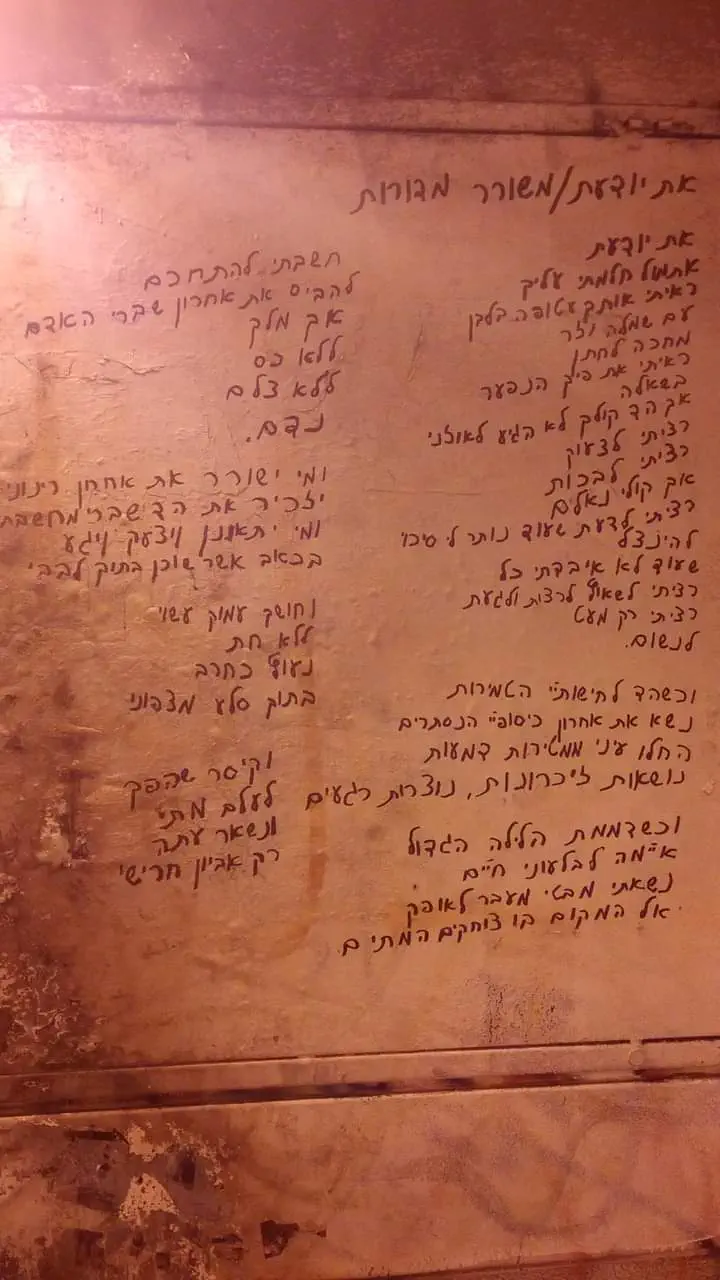 את יודעת/משורר מדורות
את יודעת
אתמול חלמתי עליך
ראיתי אותך עטופה בלבן
עם שמלה וזר
מחכה לחתן
ראיתי את פיך הנפער
בשאלה
אך הד קולך לא הגיע לאוזני
רציתי לצעוק
רציתי לבכות
אך קולי נאלם
רציתי לדעת שעוד נותר לי סיכוי
להינצל
שעוד לא איבדתי כל
רציתי לשאוף לרצות ולגעת
רציתי רק מעט
לנשום.
וכשהד לחישותיי הטמירות
נשא את אחרון כיסופיי הנסתרים
החלו עיני ממטירות דמעות
נושאות זיכרונות, נוצרות רגעים
וכשדממת הלילה הגדול
איימה לבלעוני חיים
נשאתי מבטי מעבר לאופק
אל המקום בו צוחקים המתים.
חשבתי להתחכם
להביס את אחרון שברי האדם
אך מלך
ללא כס
ללא צלם
נדם.
ומי ישורר את אחרון רינוני
יזכיר את הד שברי מחשבת
ומי יתאונן ויצעק ויגע
בכאב אשר שוכן בתיק לבבי
וחושך עמוק עשוי
ללא חת
נעוץ כחרב
בתוך סלע מצפוני
וקיסר שהפך
לעלב מתי
ונשאר עתה
רק אביון חרישי